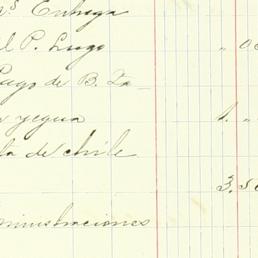 Entrega
l P. Lugo „ 0
Pago de B. Za-
yegua 1. „
ta de chile
3.5
ministraciones